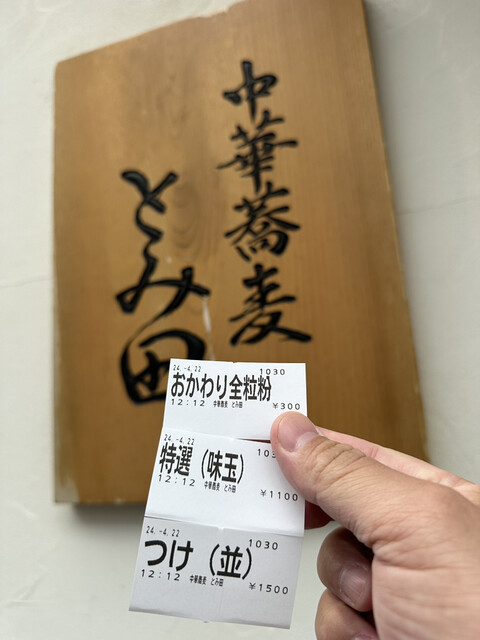 中華蕎麦
とみ田
24.-4.22 1030
おかわり全粒粉
12:12 中華蕎麦 とみ田 ¥300
24.-4.22 1030
特選(味玉)
12:12 中華蕎麦 とみ田 ¥1100
24.-4.22 1030
つけ(並)
12:12 中華蕎麦 とみ田 ¥1500